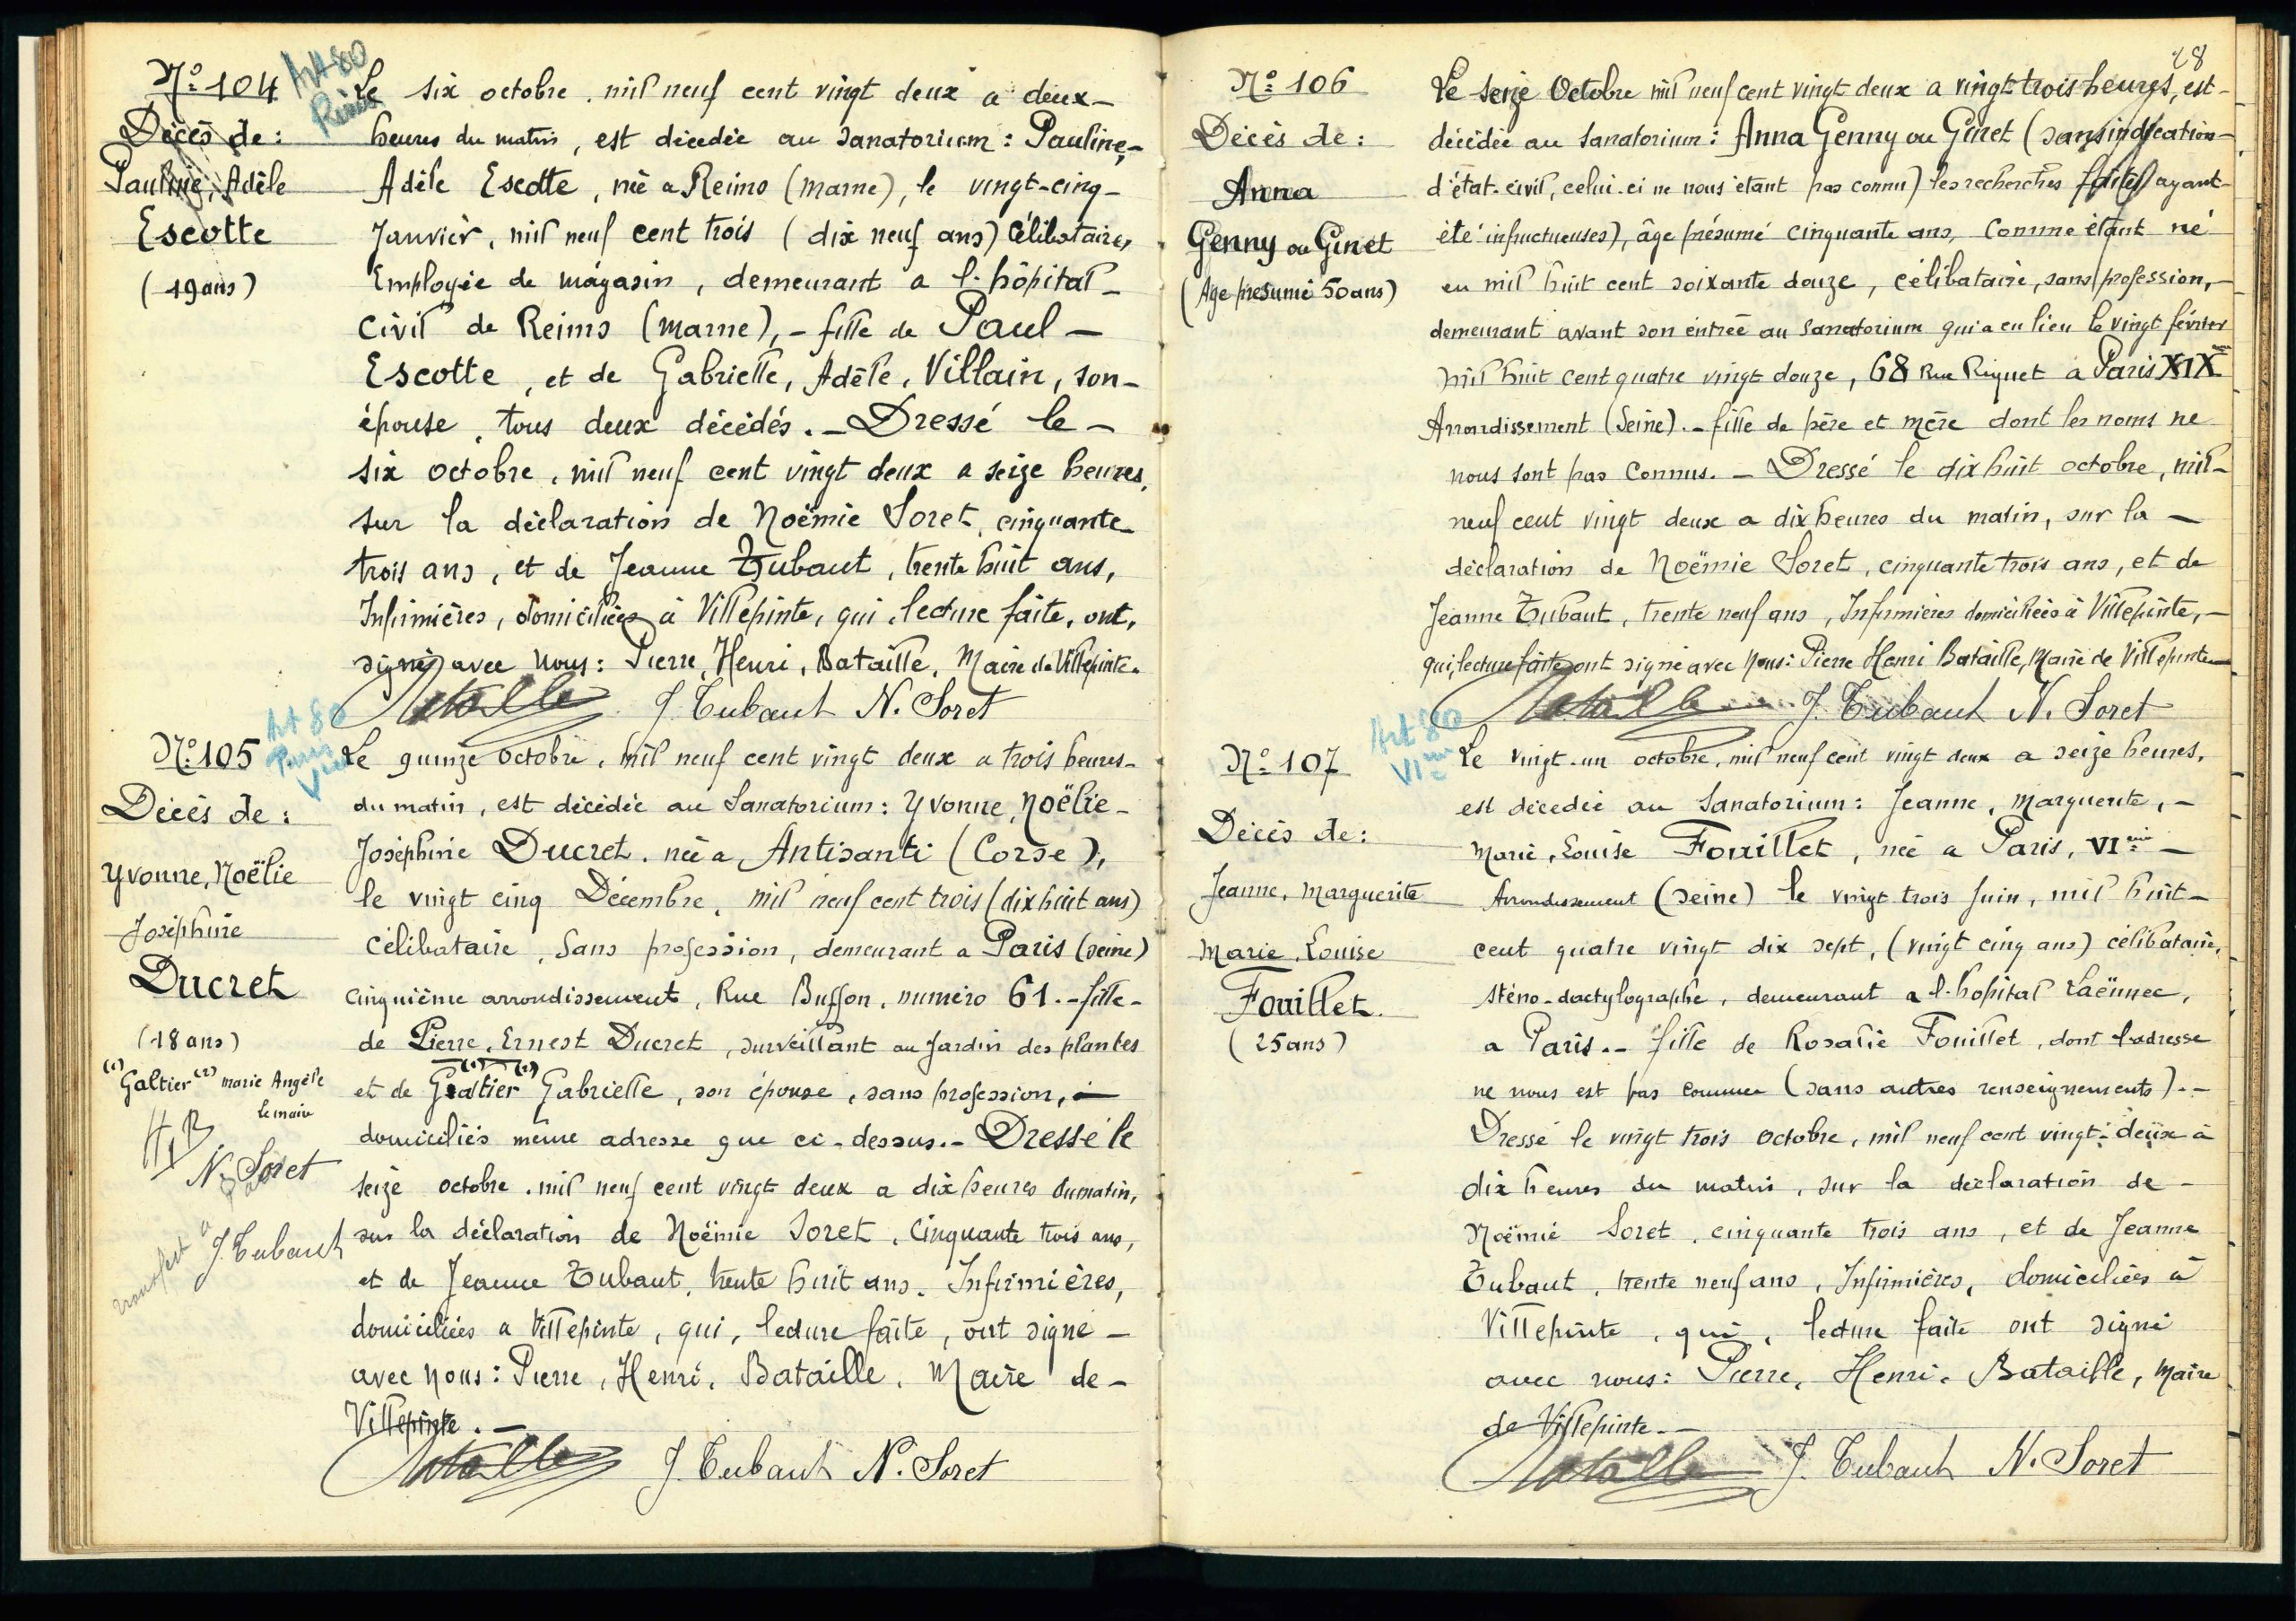 N° 104
Art 80
Reims
Décès de :
Pauline, Adèle
Escotte
(19 ans)
Le six octobre, mil neuf cent vingt deux a deux-
heures du matin, est décédée au Sanatorium : Pauline,-
Adèle Escotte, née a Reims (Marne), le vingt-cinq-
Janvier, mil neuf cent trois (dix neuf ans) Célibataire,
Employée de magasin, demeurant a l'hôpital-
Civil de Reims (Marne), - fille de Paul -
Escotte, et de Gabrielle, Adèle, Villain, son-
épouse, tous deux décédés. - Dressé le -
six octobre, mil neuf cent vingt deux a seize heures,
sur la déclaration de Noëmie Soret, cinquante
trois ans, et de Jeanne Tubaut, trente huit ans,
Infirmières, domiciliées à Villepinte, qui, lecture faite, ont,
signé avec Nous : Pierre, Henri, Bataille, Maire de Villepinte.
Bataille J. Tubaut N. Soret
N° 105
Art 80
Paris
V
Décès de :
Yvonne, Noëlie
Joséphine
Ducret
(18 ans)
(1) Galtier (2) Marie Angèle
le maire
HB
N. Soret
J. Tubaut
transcrit à Paris
Le quinze octobre, mil neuf cent vingt deux a trois heures-
du matin, est décédée au Sanatorium : Yvonne, Noëlie-
Joséphine Ducret, née a Antisanti (Corse),
le vingt cinq Décembre, mil neuf cent trois (dix huit ans)
Célibataire, Sans profession, demeurant a Paris (seine)
cinquième arrondissement, Rue Buffon, numéro 61. - fille-
de Pierre, Ernest Ducret, surveillant au Jardin des plantes
(1) (2)
et de Galtier Gabrielle, son épouse, sans profession, -
domiciliés même adresse que ci-dessus. - Dressé le
seize octobre, mil neuf cent vingt deux a dix heures du matin,
sur la déclaration de Noëmie Soret, Cinquante trois ans,
et de Jeanne Tubaut, trente huit ans, Infirmières,
domiciliées a Villepinte, qui, lecture faite, ont signé -
avec Nous : Pierre, Henri, Bataille, Maire de -
Villepinte. -
Bataille J. Tubaut N. Soret
28
N° 106
Décès de :
Anna
Genny ou Ginet
(Age présumé 50 ans)
Le seize Octobre mil neuf cent vingt deux a vingt trois heures, est-
décédée au Sanatorium : Anna Genny ou Ginet (sans indication-
d'état-civil, celui-ci ne nous étant pas connu) les recherches faites ayant-
été infructueuses), âge présumé cinquante ans, Comme étant né
en mil huit cent soixante douze, célibataire, sans profession, -
demeurant avant son entrée au Sanatorium qui a eu lieu le vingt février
mil huit cent quatre vingt douze, 68 Rue Riquet a Paris XIX
Arrondissement (Seine). - fille de père et mère dont les noms ne
nous sont pas Connus. - Dressé le dix huit octobre, mil-
neuf cent vingt deux a dix heures du matin, sur la -
déclaration de Noëmie Soret, cinquante trois ans, et de
Jeanne Tubaut, trente neuf ans, Infirmières domiciliées à Villepinte, -
qui, lecture faite, ont signé avec Nous : Pierre Henri Bataille, Maire de Villepinte
Bataille J. Tubaut N. Soret
N° 107
Art 80
VI
Décès de :
Jeanne, Marguerite
Marie, Louise
Fouillet.
(25 ans)
Le vingt-un octobre, mil neuf cent vingt deux a seize heures,
est décédée au Sanatorium : Jeanne, Marguerite, -
Marie, Louise Fouillet, née a Paris, VIème -
Arrondissement (Seine) le vingt trois Juin, mil huit-
cent quatre vingt dix sept, (vingt cinq ans) célibataire,
sténo-dactylographe, demeurant a l'hôpital Laënnec,
a Paris. - fille de Rosalie Fouillet, dont l'adresse
ne nous est pas connue (sans autres renseignements). -
Dressé le vingt trois octobre, mil neuf cent vingt-deux à
dix heures du matin, sur la déclaration de -
Noëmie Soret, cinquante trois ans, et de Jeanne
Tubaut, trente neuf ans, Infirmières, domiciliées à
Villepinte, qui, lecture faite ont signé
avec nous : Pierre, Henri, Bataille, Maire
de Villepinte. -
Bataille J. Tubaut N. Soret